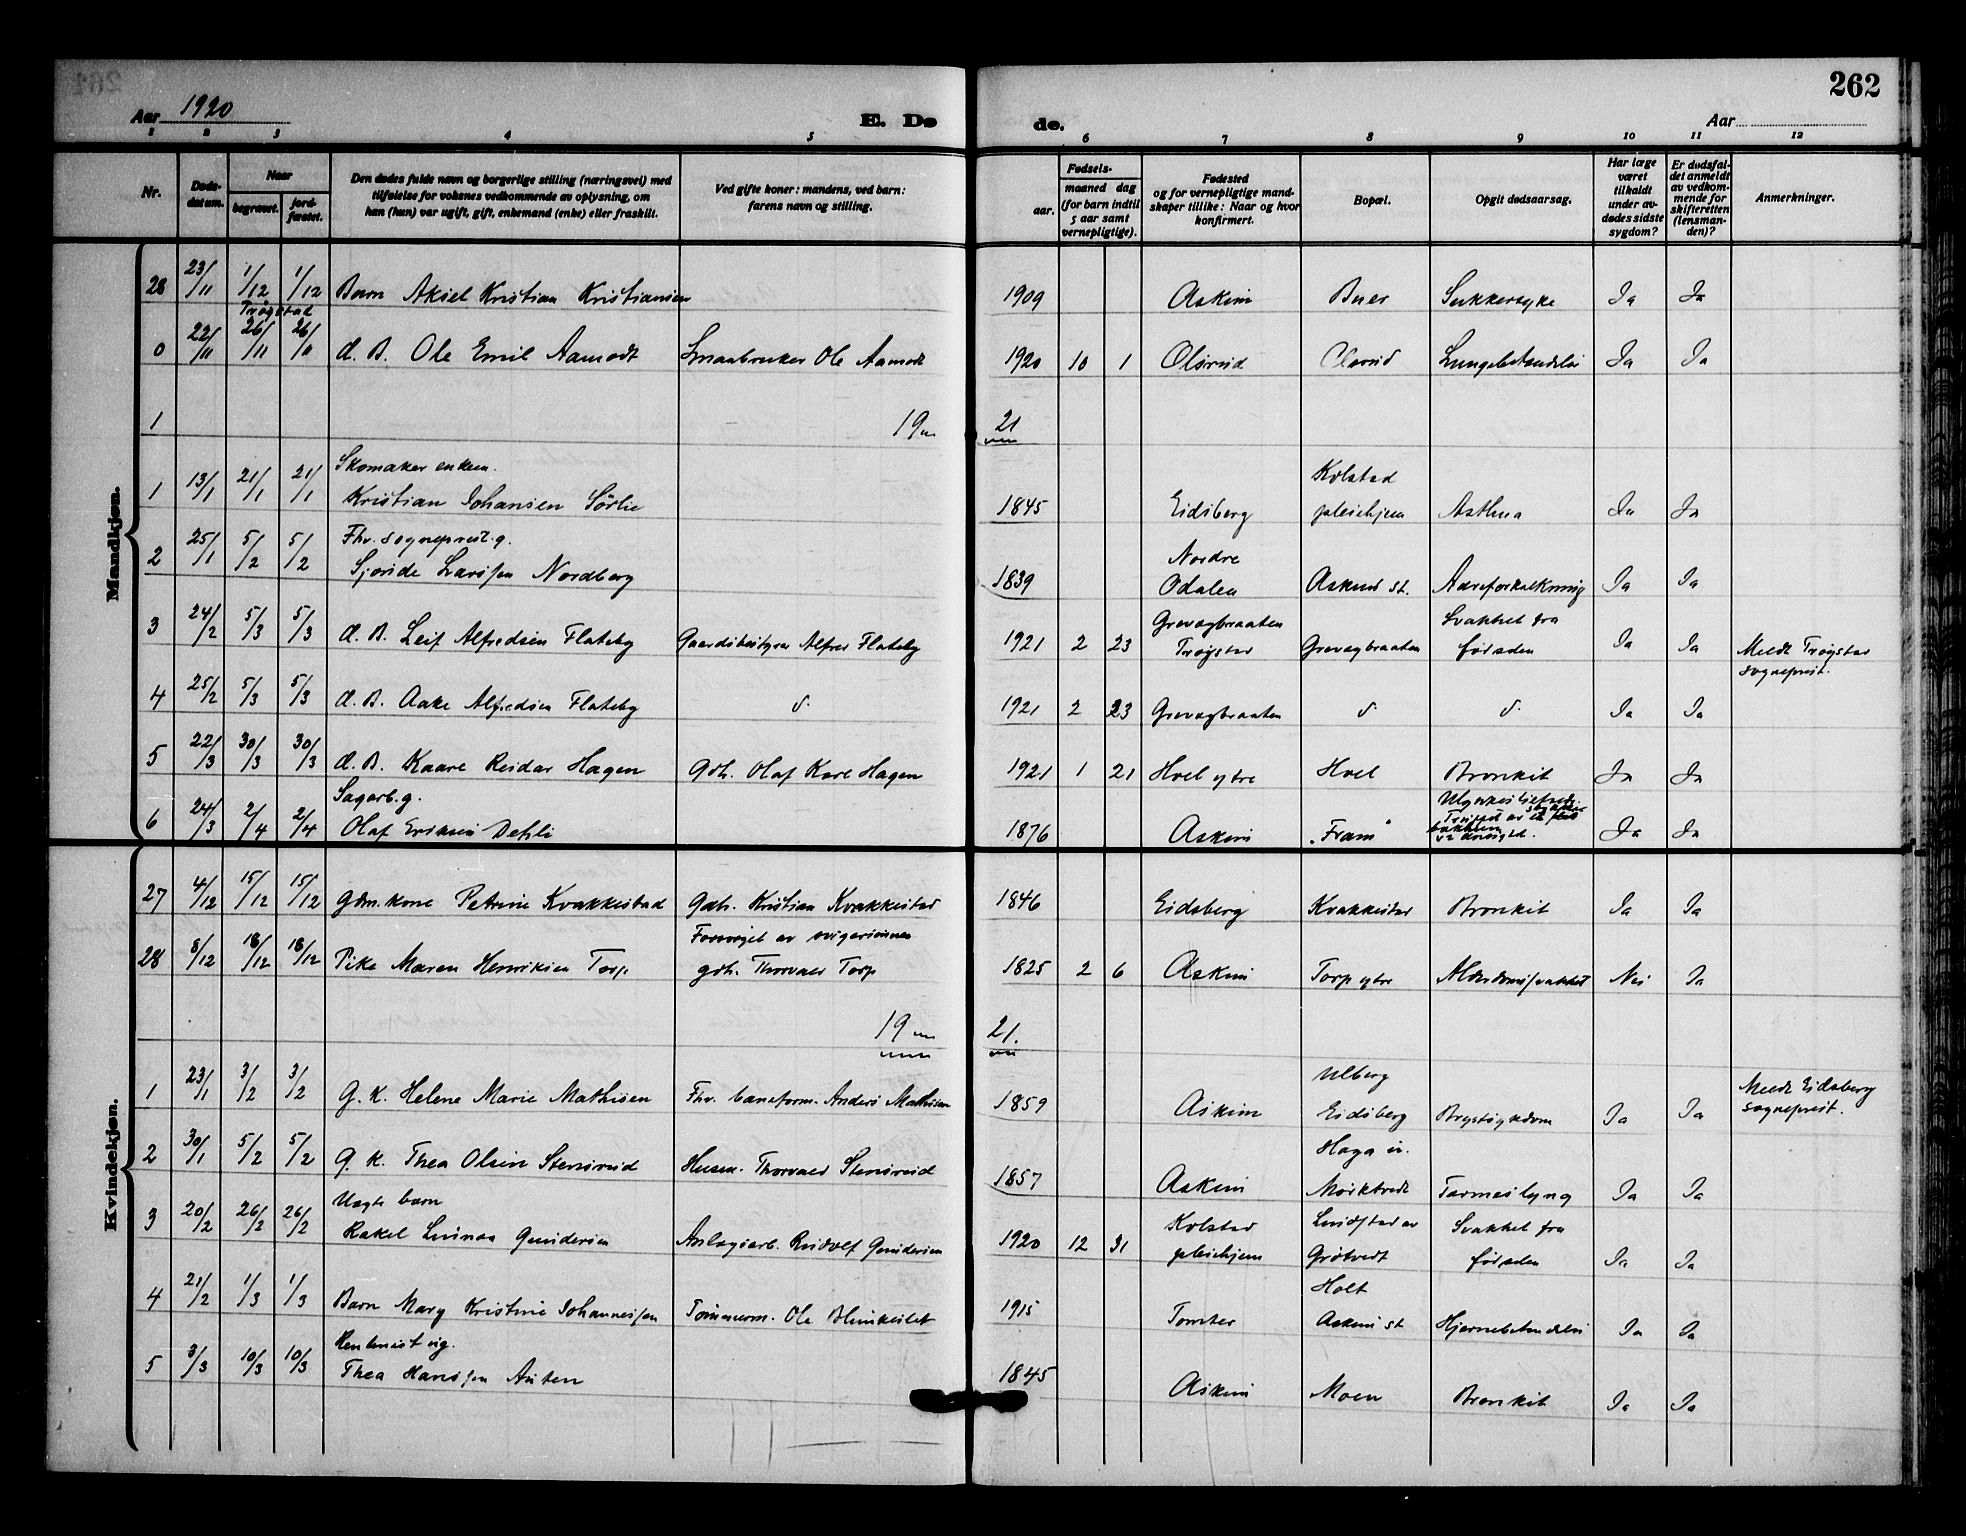 262
Aar 1920
E. Dø
de.
Aar
1 2 3 4 5 6 7 8 9 10 11 12
Nr.
Døds-datum.
Naar
begravet.
jord-fæstet.
Den dødes fulde navn og borgerlige stilling (næringsvei) med
tilføielse for voksnes vedkommende av oplysning, om
han (hun) var ugift, gift, enkemand (enke) eller fraskilt.
Ved gifte koner: mandens, ved barn:
farens navn og stilling.
Fødsels-
aar.
maaned dag
(for barn indtil
5 aar samt
vernepligtige).
Fødested
og for vernepligtige mand-
skaper tillike: Naar og hvor
konfirmert.
Bopæl.
Opgit dødsaarsag.
Har læge
været
tilkaldt
under av-
dødes sidste
sygdom?
Er dødsfal-
det anmeldt
av vedkom-
mende for
skifteretten
(lensman-
den)?
Anmerkninger.
Mandkjøn.
28 23/11 1/12 1/12 Barn Aksel Kristian Kristiansen 1909 Askim Buer Sukkersyke Ja Ja
Trøgstad
0 22/11 26/11 26/11 d. B. Ole Emil Aamodt Smaabruker Ole Aamodt 1920 10 1 Olsrud Olsrud Lungebetændelse Ja Ja
1 19 21
Skomaker enkem. Kolstad
1 13/1 21/1 21/1 Kristian Johansen Sørlie 1845 Eidsberg pleiehjem Asthma Ja Ja
Fhv. sogneprest. g. Nordre
2 25/1 5/2 5/2 Larssen Nordberg 1839 Odalen Askim st. Aareforkalkning Ja Ja
Grevegbraaten Svakhet fra
3 24/2 5/3 5/3 d. B. Leif Alfredsen Flateby Gaardsbestyrer Alfred Flateby 1921 2 23 Trøgstad Grevegbraaten fødselen Ja Ja Meldt Trøgstad
sogneprest.
4 25/2 5/3 5/3 d. B. Aake Alfredsen Flateby d. 1921 2 23 Grevegbraaten d. d. Ja Ja
5 22/3 30/3 30/3 d. B. Kaare Reidar Hagen Gdb. Olaf Karl Hagen 1921 1 21 Hoel ytre Hoel Bronkit Ja Ja
Sagarb. g. Ulykkestilfælde.
6 24/3 2/4 2/4 Olaf Eriksen Dehli 1876 Askim „Fram“ Ja Ja
Kvindekjøn.
27 4/12 15/12 15/12 Gdm. kone Petrine Kvakkestad Gdb. Kristian Kvakkestad 1846 Eidsberg Kvakkestad Bronkit Ja Ja
Forsørget av svigersønnen
28 8/12 18/12 18/12 Pike Maren Henriksen Torp gdb. Thorvald Torp 1825 2 6 Askim Torp ytre Alderdomssvakhet Nei Ja
19 21.
Ulberg Meldt Eidsberg
1 23/1 3/2 3/2 G. K. Helene Marie Mathisen Fhv. baneform. Anders Mathisen 1859 Askim Eidsberg Brystsykdom Ja Ja sogneprest.
Haga u.
2 30/1 5/2 5/2 G. K. Thea Olsen Stensrud Husm. Thorvald Stensrud 1857 Askim Mørktvedt Tarmeslyng Ja Ja
Uegte barn Kolstad Lundstad av Svakhet fra
3 20/2 26/2 26/2 Rakel Gundersen Anlægsarb. Rudolf Gundersen 1920 12 31 pleiehjem Grøtvedt fødselen Ja Ja
Holt
4 21/2 1/3 1/3 Barn Mary Kristine Johannessen Tømmerm. Ole 1915 Tomter Askim st Hjernebetændelse Ja Ja
Rentenist ug.
5 3/3 10/3 10/3 Thea Hanssen Austen 1845 Askim Moen Bronkit Ja Ja